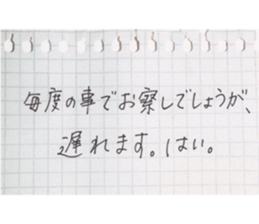 毎度の車でお察しでしょうが、
遅れます。はい。